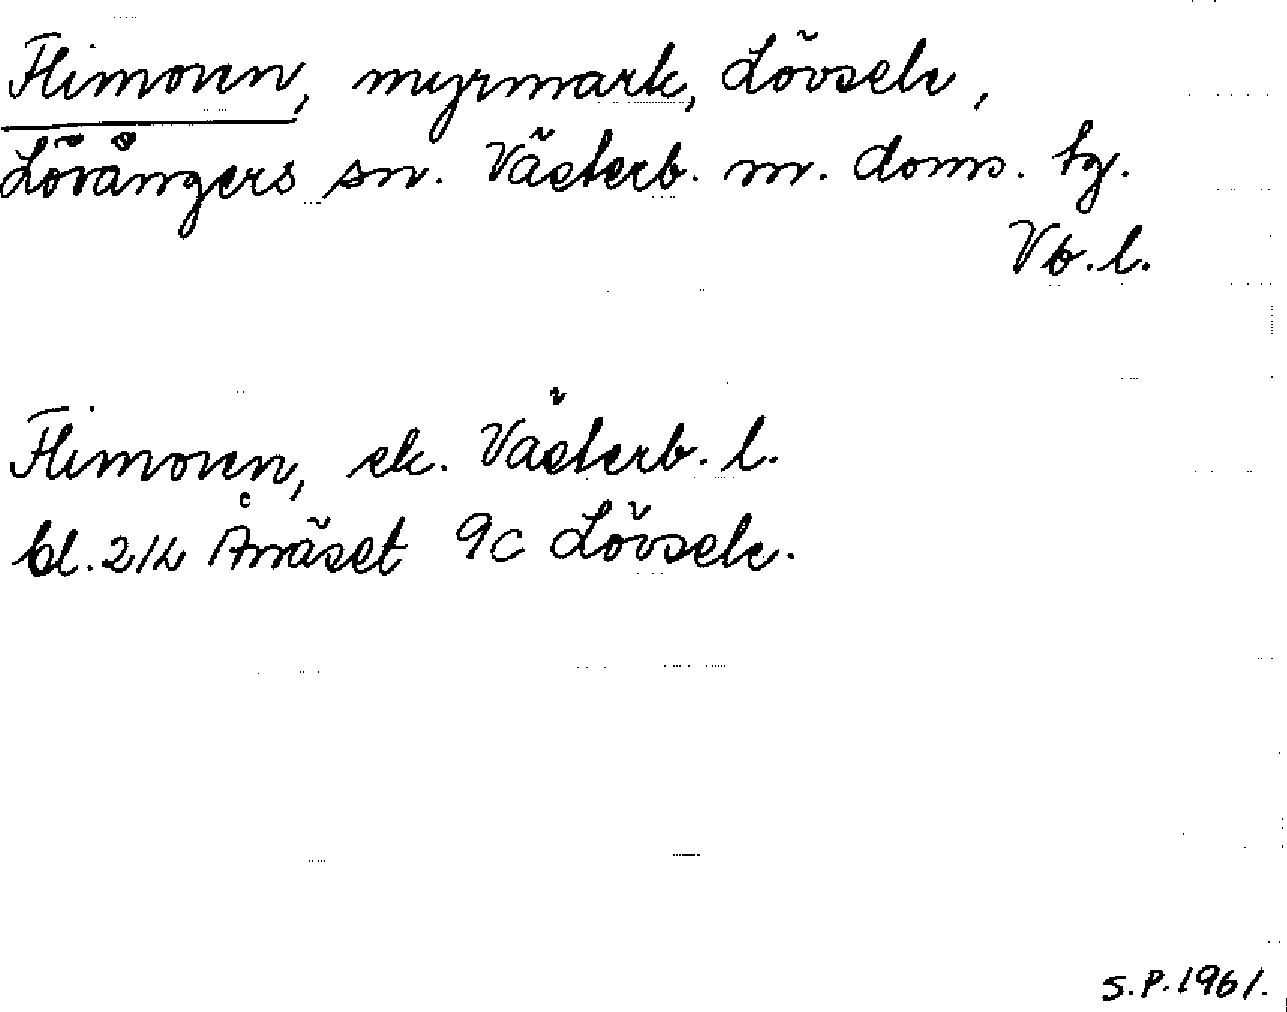 Flimoren, myrmark, Lövsele,
Lövångers sn. Västerb. m. doms. tg.
Vb. l.
Flimoren, ek. Västerb. l.
bl. 21L Ånäset 9c Lövsele.
S.P. 1961.